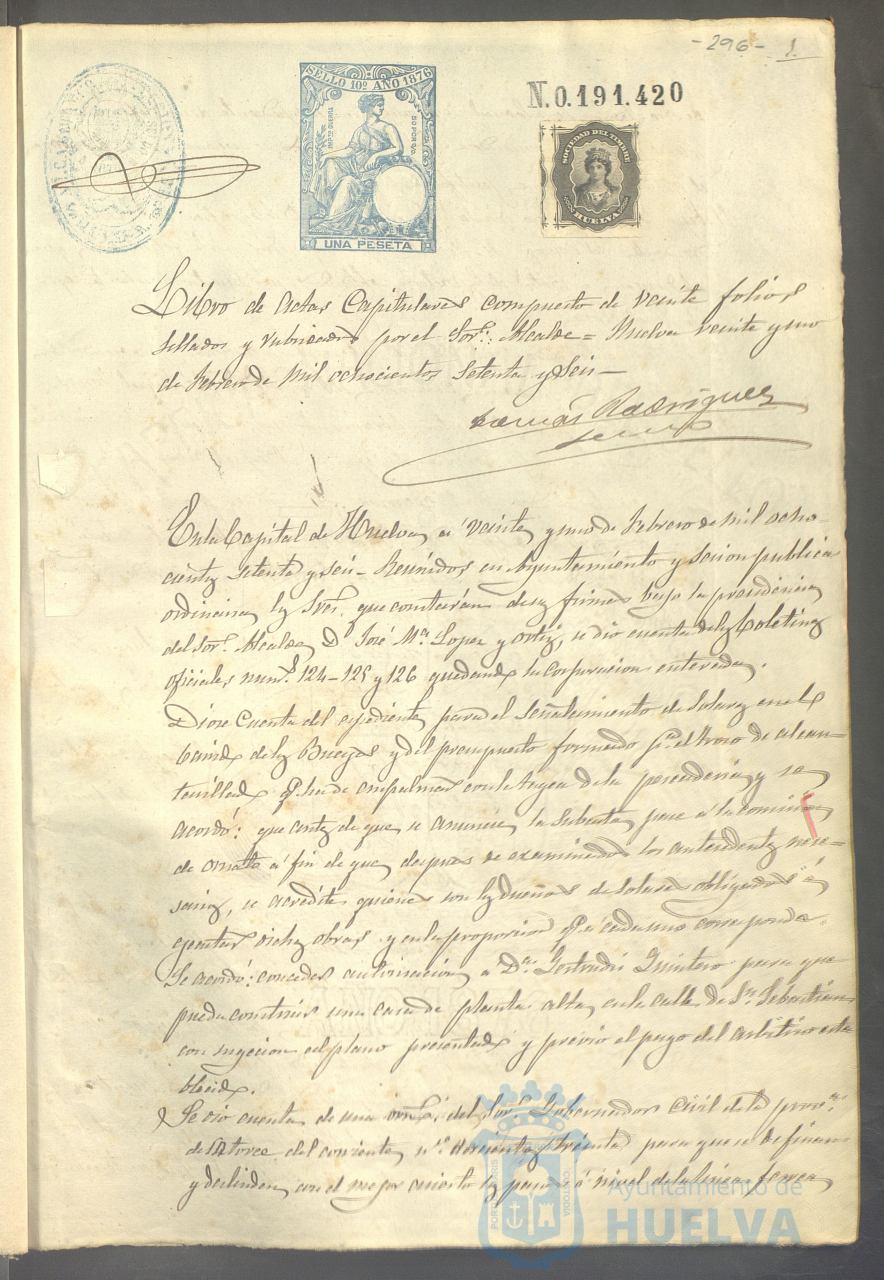 -296- 1
SELLO 10º AÑO 1876
IMPTO. GUERRA
50 POR 0/0
UNA PESETA
N.0.191.420
SOCIEDAD DEL TIMBRE
HUELVA
Libro de Actas Capitulares compuesto de veinte folios
sellados y rubricados por el Sor. Alcalde = Huelva veinte y uno
de Febrero de mil ochocientos setenta y seis—
Tomás Rodríguez
En la Capital de Huelva, a veinte y uno de Febrero de mil ocho-
cientos setenta y seis— Reunidos en Ayuntamiento y sesion publica
ordinaria los Sres. que constarán de sus firmas bajo la presidencia
del Sor. Alcalde D. José Mª Lopez y Ortiz, se dio cuenta de los boletines
oficiales num.s 124-125 y 126 quedando la corporacion enterada.
Diose cuenta del espediente para el señalamiento de solares en el
de las y del presupuesto formado pª el trozo de alcan-
tarillado q. ha de empalmar con la de la pescaderia y se
acordó: que antes de que se anuncie la subasta pase á la comision
de ornato á fin de que despues de examinados los antecedentes nece=
sarios, se acredite quienes son los dueños de solares obligados á
ejecutar dichas obras y en la proporcion q. á cada uno corresponda.
Se acordó: conceder autorizacion a Dª Gertrudis Quintero para que
pueda construir una casa de planta alta en la calle de Sn. Sebastian
con sugecion al plano presentado y previo el pago del arbitrio esta
blecido.
Se dio cuenta de una orn. del Sor. Gobernador Civil de la prova.
de catorce del corriente nº doscientos treinta para que se definan
y deslinden con el mejor acierto los pasos á nivel de la linea ferrea
PORTUS MARIS
CUSTODIA
Ayuntamiento de
HUELVA